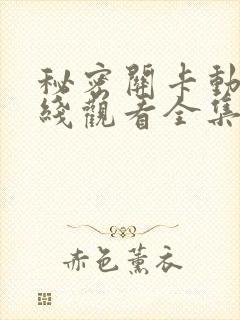 秘密關卡動
綫觀看全集
赤色薰衣